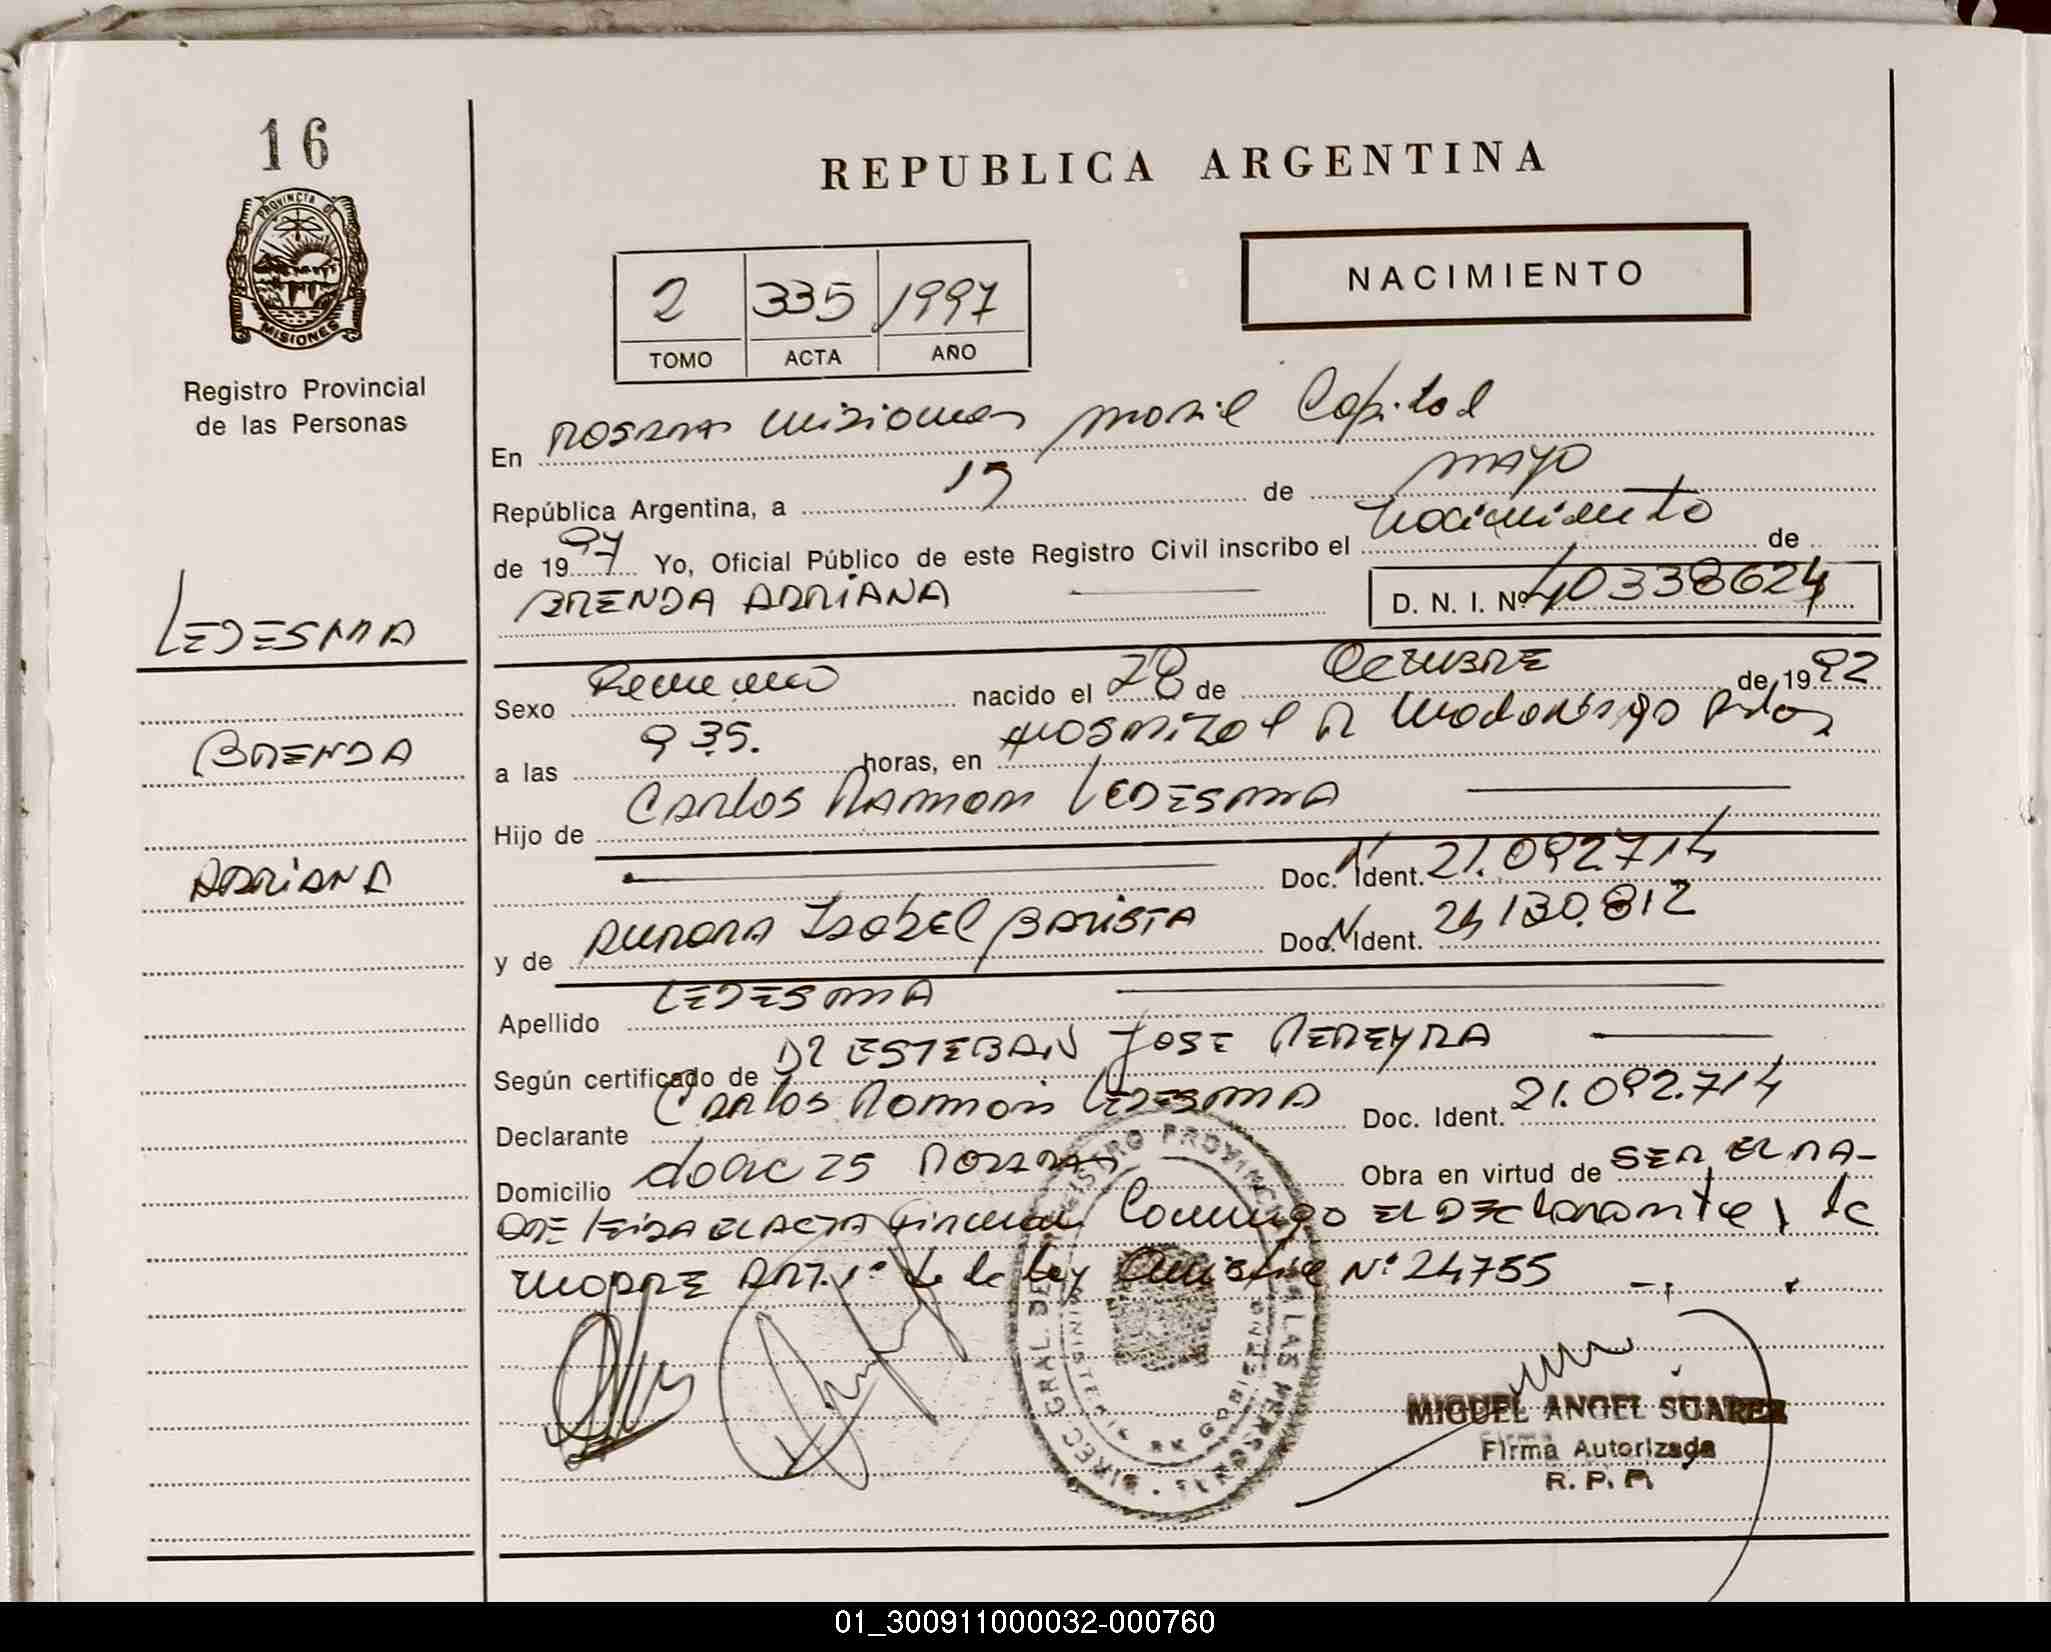 16
PROVINCIA DE
MISIONES
Registro Provincial
de las Personas
REPUBLICA ARGENTINA
NACIMIENTO
2 335 1997
TOMO ACTA AÑO
En Posadas Misiones Movil Capital
República Argentina, a 19 de MAYO
de 1997 Yo, Oficial Público de este Registro Civil inscribo el Nacimiento de
BRENDA ADRIANA D. N. I. Nº 40338624
LEDESMA
Sexo Femenino nacido el 28 de OCTUBRE de 1992
BRENDA
a las 9 35. horas, en Hospital R Madariaga Pdas
Hijo de CARLOS RAMON LEDESMA
ADRIANA
Doc. Ident. 21.092714
y de AURORA ISABEL BAUISTA Doc. Ident. 24130.812
Apellido LEDESMA
Según certificado de DR ESTEBAN JOSE PEREYRA
Declarante CARLOS RAMON LEDESMA Doc. Ident. 21.092.714
Domicilio 25 Posadas Obra en virtud de SER EL PA-
DRE leida EL ACTA firman Conmigo EL DEClarante y la
MADRE ART. 1º de la ley Amnistia Nº 24755
DIREC. GRAL. DEL REGISTRO PROVINCIAL DE LAS PERSONAS
MINISTERIO DE GOBIERNO
MIGUEL ANGEL SUAREZ
Firma Autorizada
R. P. P.
01_300911000032-000760